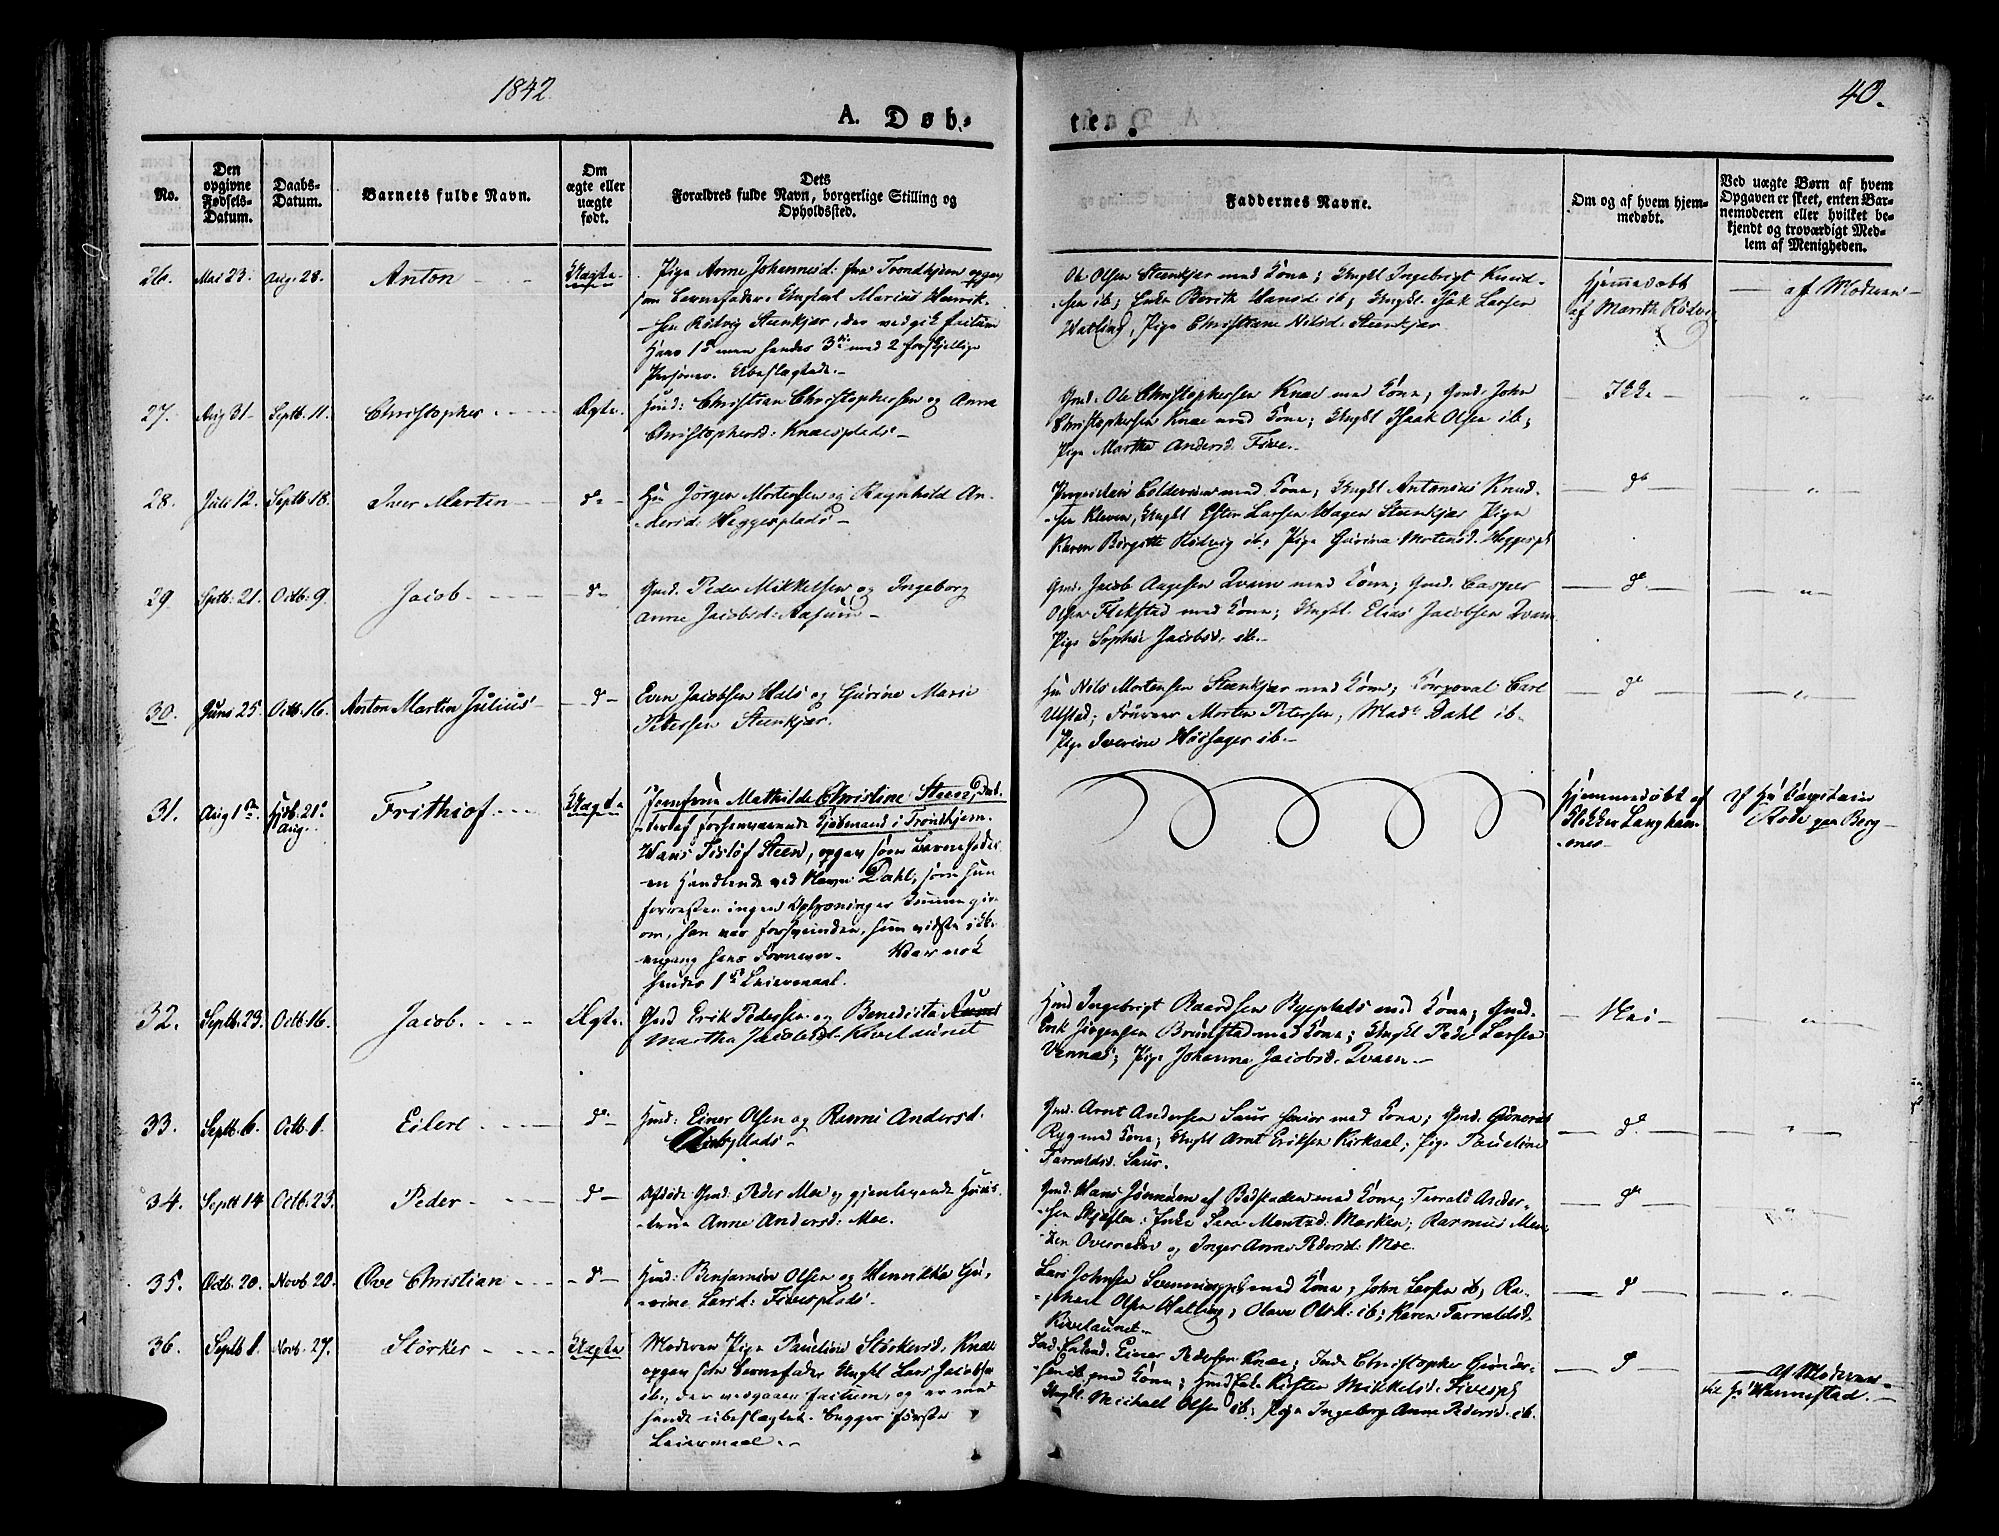 1842
40.
A. Døb-
te.
No.
Den opgivne Fødsels-Datum.
Daabs-Datum.
Barnets fulde Navn.
Om ægte eller uægte født.
Dets
Forældres fulde Navn, borgerlige Stilling og
Opholdssted.
Faddernes Navne.
Om og af hvem hjem-
medøbt.
Ved uægte Børn af hvem
Opgaven er skeet, enten Bar-
nemoderen eller hvilket be-
kjendt og troværdigt Med-
lem af Menigheden.
26. Mai 23. Aug. 28. Anton Uægte
Pige Anne Johannesd: fra Trondhjem opgav
som Barnefader, Ungkarl Marius Henrik-
sen Rødvig Steenkjær, der vedgik factum
Hans 1ste men hendes 3die med 2 forskjellige
Personer. Ubeslægtede.
Ole Olsen Steenkjær med Kone; Ungk. Ingebrigt Knud-
sen ib; Enke Berith Hansd. ib; Ungk. Isak Larsen
Pige Christiane Nilsd. Steenkjær
Hjemmedøbt
af Marith Rødvig
af Moderen
27. Aug 31 Septb. 11. Christopher Ægte.
Huusmd: Christian Christophersen og Anne
Christophersd: Knæesplads
Gmd. Ole Christophersen Knæe med Kone; Gmd. John
Christophersen Knæe med Kone; Ungk. Isaak Olsen ib;
Pige Martha Andersd. Five.
Ikke
"
28. Juli 12. Septb. 18. Iver Martin do
Hr. Jørgen Mortensen og Ragnhild An-
dersd. Heggesplads
med Kone; Ungk. Antonius Knud-
sen Kleven, Ungk. Ester Larsen Hagen Steenkjær Pige
Karen Birgitte Rødvig ib; Pige Gurina Mortensd. Heggespl.
do
"
29 Septb. 21. Octb. 9. Jacob do
Gmd. Peder Mikkelsen og Ingeborg
Anne Jacobsd: Aasum
Gmd. Jacob Aagesen Qvam med Kone; Gmd. Casper
Olsen Flekstad med Kone; Ungk. Elias Jacobsen Qvam
Pige Sophie Jacobsd. ib.
do
"
30. Juni 25. Octb. 16. Anton Martin Julius do
Even Jacobsen Hals og Gurine Marie
Petersen Steenkjær.
Hr. Nils Mortensen Steenkjær med Kone; Korporal Carl
Ulstad; Morten Petersen; Mad. Dahl ib.
Pige Iverine ib.
do
"
31. Aug 1ste Hjdb. 21de Aug. Frithiof Uægte
Jomfrue Mathilde Christine Steen, Dat-
ter af forhenværende Kjøbmand i Trondhjem
Hans Steen, opgav som Barnefader
en Handlende ved Navn Dahl, som hun
forresten ingen Oplysninger kunne give
om, han var forsvunden, hun vidste ikke
engang hans Fornavn. Var nok
hendes 1ste Leiermaal.
Hjemmedøbt af
Klokker Langham-
mer
af Hr. Capitain
Rode paa Berg
32. Septb. 23. Octb. 16. Jacob. Ægte.
Gmd Erik Pedersen og Benedicta
Martha Jacobsd. Kvelauret
Hmd Ingebrigt Baardsen Byeplads med Kone; Gmd.
Erik Jørgensen Brunstad med Kone; Ungk. Peder Larsen
Vennes; Pige Johanna Jacobsd. Qvam
Nei
"
33. Septb. 6. Octb. 1. Eilert do
Huusmd: Einer Olsen og Andersd.
Gmd. Arnt Andersen Saur Senior med Kone; Gmd.
Ryg med Kone; Ungk. Arnt Eriksen Kirkaal; Pige Pauline
Tarraldsd. Saur.
do
"
34. Septb 14 Octb. 23. Peder do
Afdøde Gmd: Peder Moe og gjenlevende Huus-
true Anne Andersd: Moe.
Gmd. Hans af med Kone; Tarrald Ander-
sen Enke Sara Mentzd. Marken; Rasmus
og Inger Anna Pedersd: Moe.
do
"
35. Octb. 20. Novb 20. Ove Christian do
Huusmd: Benjamin Olsen og Henrikka Gu-
rine Larsd: Fivesplads.
Lars Johnsen med Kone; John Larsen ib;
Olsen Olava Olsd: ib; Karen Tarraldsd.
Kvelauret
do
"
36. Septb 1. Novb. 27. Størker Uægte
Moderen Pige Pauline Størkersd. Knæe
opgav som Barnefader Ungk. Lars Jacobsen
ib, der vedgaaer factum, og er med
hende ubeslægtet. Begges første
Leiermaal.
Einer Pedersen Knæe; Christopher
ib med Kone; Kirsten Mikkelsd. Fivespl.
Ungk. Michael Olsen ib; Pige Ingeborg Anne Pedersd. ib.
do
Af Moderen
til Hr. Wannestad.